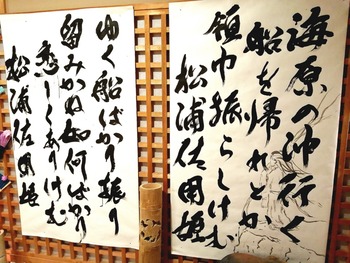 海原の沖行く
船を帰れとか
領巾振らしけむ
松浦佐用姫
ゆく船ばかり振り
留みかね如何ばかり
恋しくありけむ
松浦佐用姫